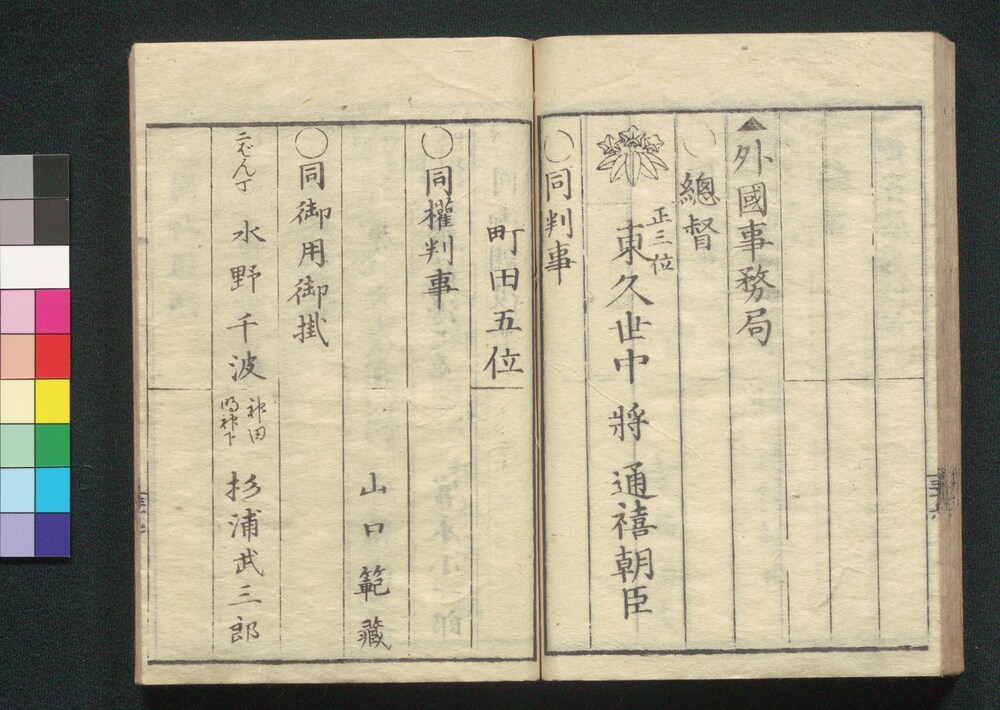 ▲外國事務局
○總督
正三位
東久世中將通禧朝臣
○同判事
町田五位
○同權判事
山口範藏
○同御用御掛
二ばん丁
水野千波
神田
明神下
杉浦武三郎